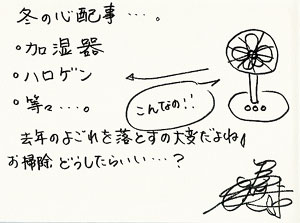 冬の心配事…。
・加湿器
・ハロゲン
こんなの!!
・等々…。
去年のよごれを落とすの大変だよね
お掃除どうしたらいい…?